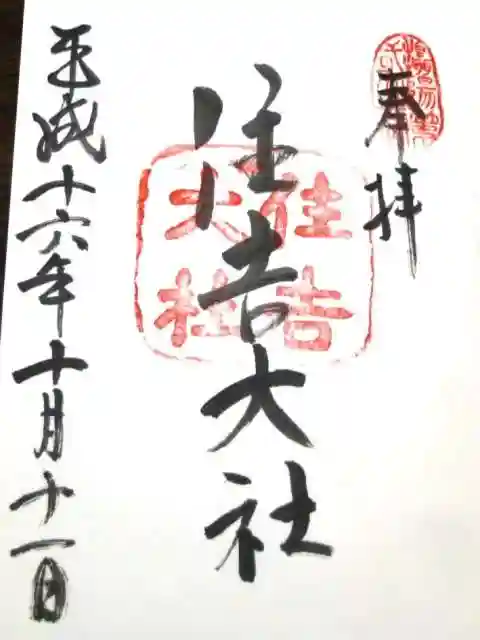 奉拝
住吉大社
住吉
大社
平成十六年十月十一日